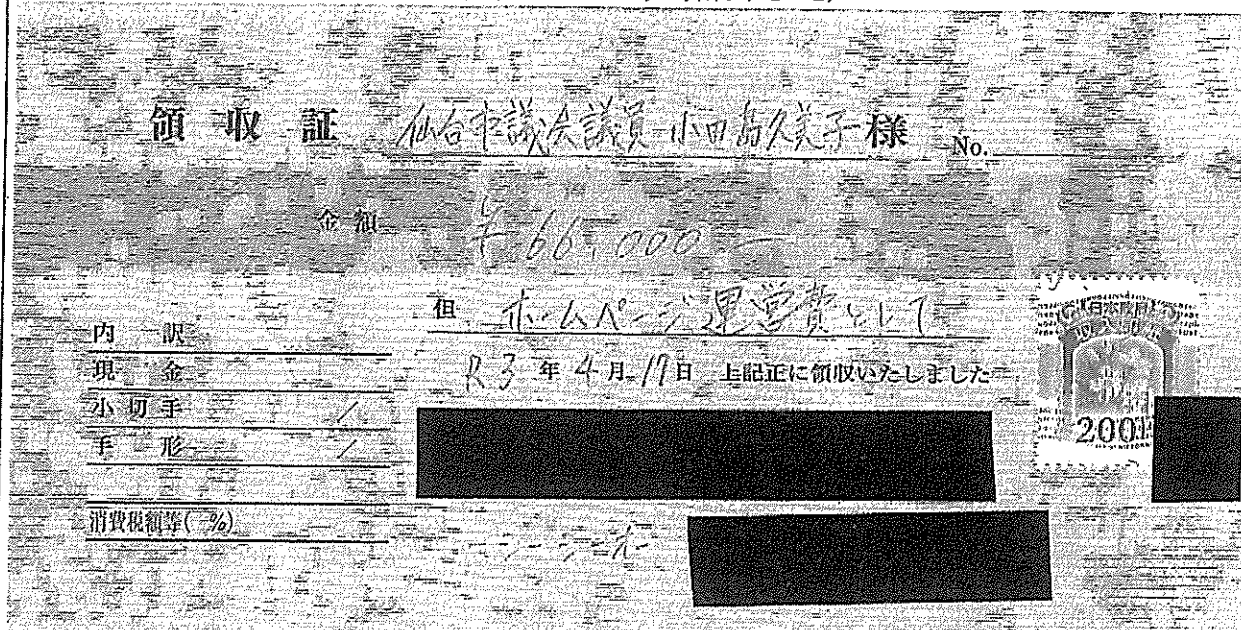 領収証 仙台市議会議員 小田島久美子 様 No.
金額 ¥66,000 —
但 ホームページ運営費として
R3年4月17日 上記正に領収いたしました
内訳
現金
小切手 /
手形 /
消費税額等( %)
200円